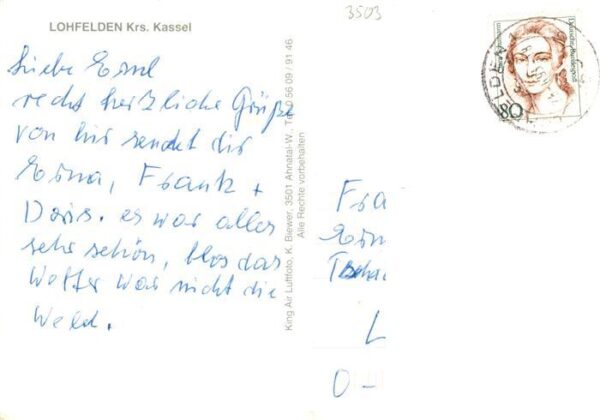 LOHFELDEN Krs. Kassel
3503
Liebe
recht herzliche Grüße
von hir sendet dir
Erna, Frank +
Doris. es war alles
sehr schön, blos das
Wetter war nicht die
Welt.
King Air Luftfoto, K. Biewer, 3501 Ahnatal-W., Tel. 0 56 09 / 91 46
Alle Rechte vorbehalten
80
Fra
L
O -